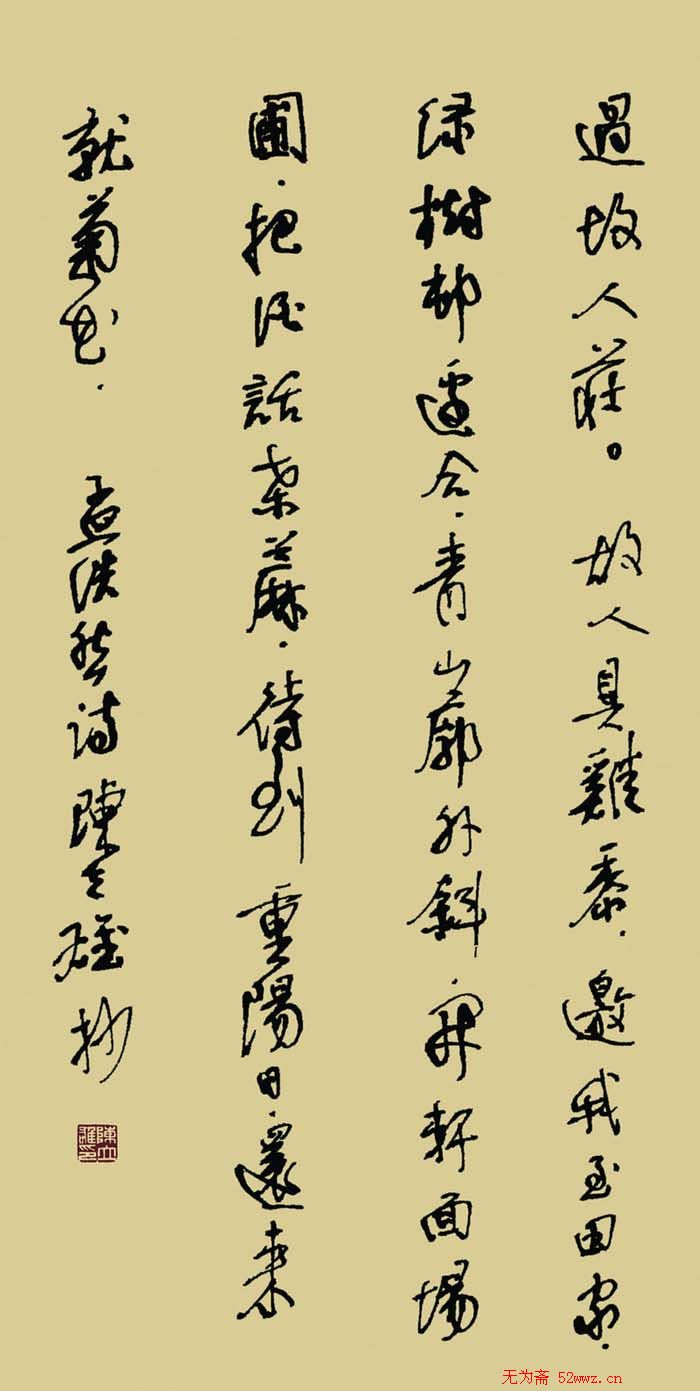 過故人莊。故人具雞黍.邀我至田家.
绿樹邨邊合.青山廓外斜.開軒面場
圃.把酒話桑蔴.待到重陽日.還来
就菊花.孟浩然诗陳立雄抄
陳立雄印
无为斋 52wwz.cn